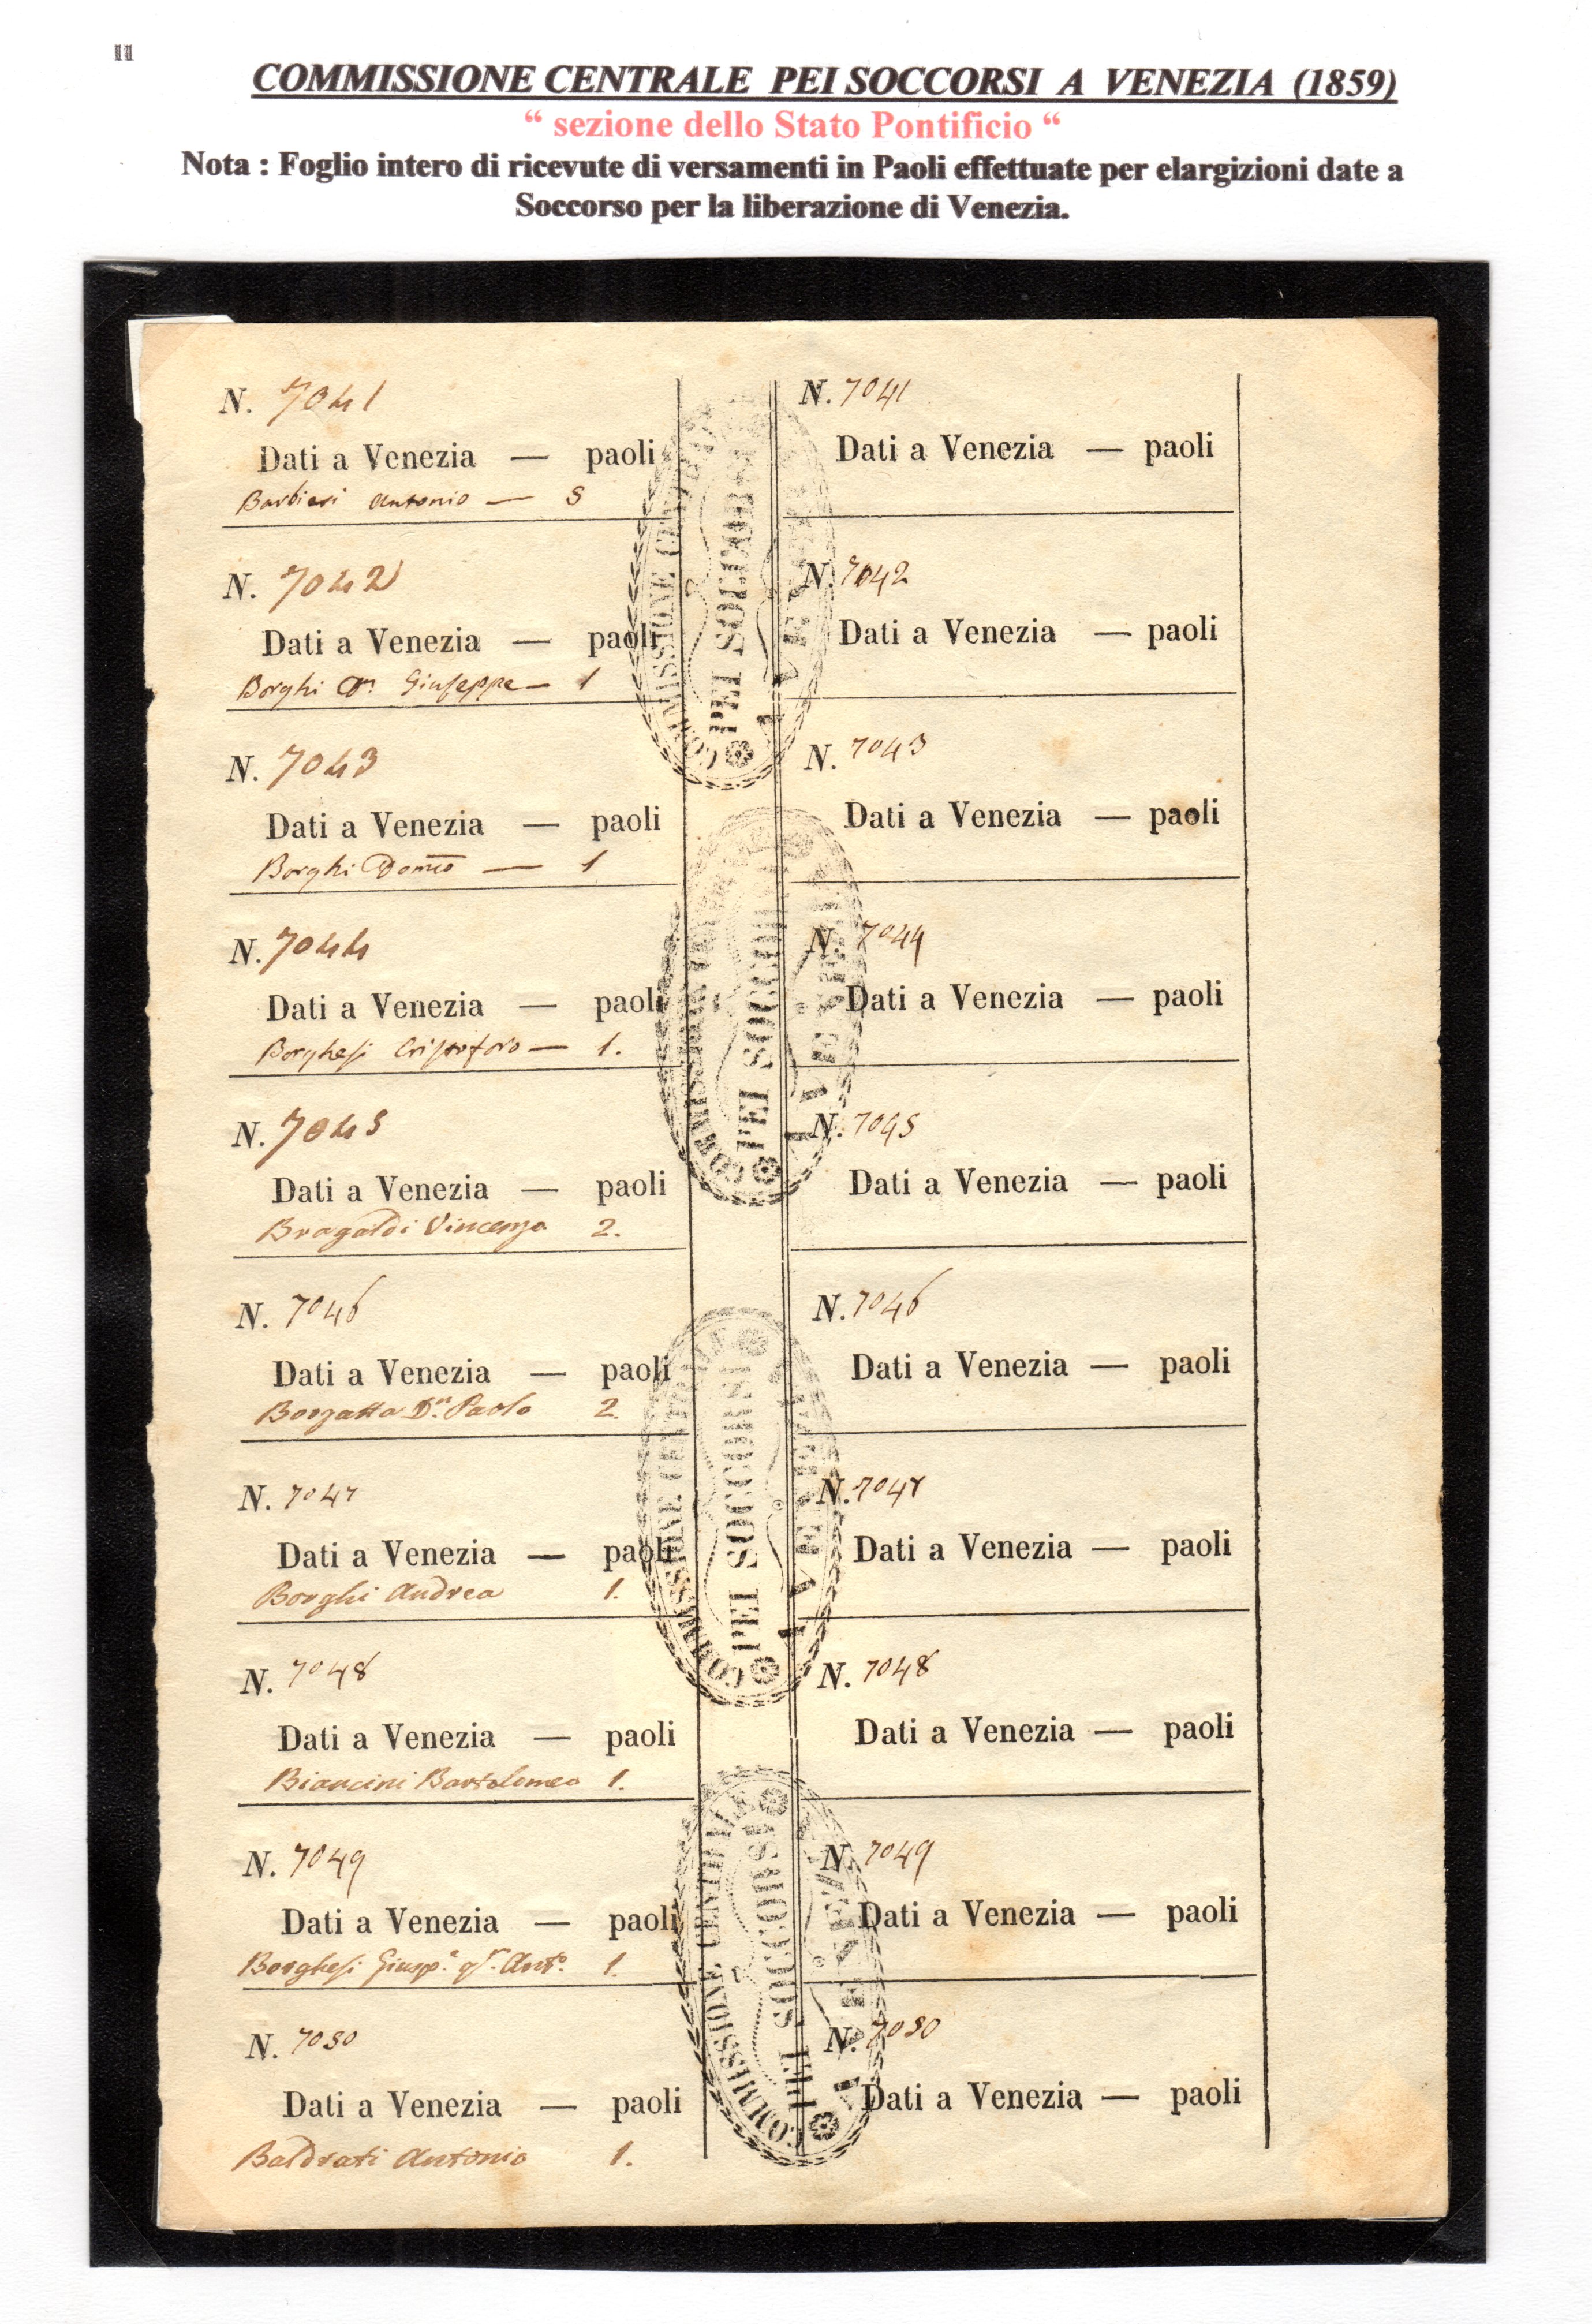 II
COMMISSIONE CENTRALE PEI SOCCORSI A VENEZIA (1859)
“ sezione dello Stato Pontificio “
Nota : Foglio intero di ricevute di versamenti in Paoli effettuate per elargizioni date a
Soccorso per la liberazione di Venezia.
N. 7041
Dati a Venezia — paoli
Barbieri Antonio — 5
N. 7042
Dati a Venezia — paoli
Borghi Dn. Giuseppe — 1
N. 7043
Dati a Venezia — paoli
Borghi Domco — 1
N. 7044
Dati a Venezia — paoli
Borghesi Cristoforo — 1.
N. 7045
Dati a Venezia — paoli
Bragaldi Vincenzo 2.
N. 7046
Dati a Venezia — paoli
Borzatta Dn. Paolo 2.
N. 7047
Dati a Venezia — paoli
Borghi Andrea 1.
N. 7048
Dati a Venezia — paoli
Biancini Bartolomeo 1.
N. 7049
Dati a Venezia — paoli
Borghesi Giusppe. Anto. 1.
N. 7050
Dati a Venezia — paoli
Baldrati Antonio 1.
COMMISSIONE CENTRALE
PEI SOCCORSI
A VENEZIA
COMMISSIONE CENTRALE
PEI SOCCORSI
A VENEZIA
COMMISSIONE CENTRALE
PEI SOCCORSI
A VENEZIA
COMMISSIONE CENTRALE
PEI SOCCORSI
A VENEZIA
N. 7041
Dati a Venezia — paoli
N. 7042
Dati a Venezia — paoli
N. 7043
Dati a Venezia — paoli
N. 7044
Dati a Venezia — paoli
N. 7045
Dati a Venezia — paoli
N. 7046
Dati a Venezia — paoli
N. 7047
Dati a Venezia — paoli
N. 7048
Dati a Venezia — paoli
N. 7049
Dati a Venezia — paoli
N. 7050
Dati a Venezia — paoli